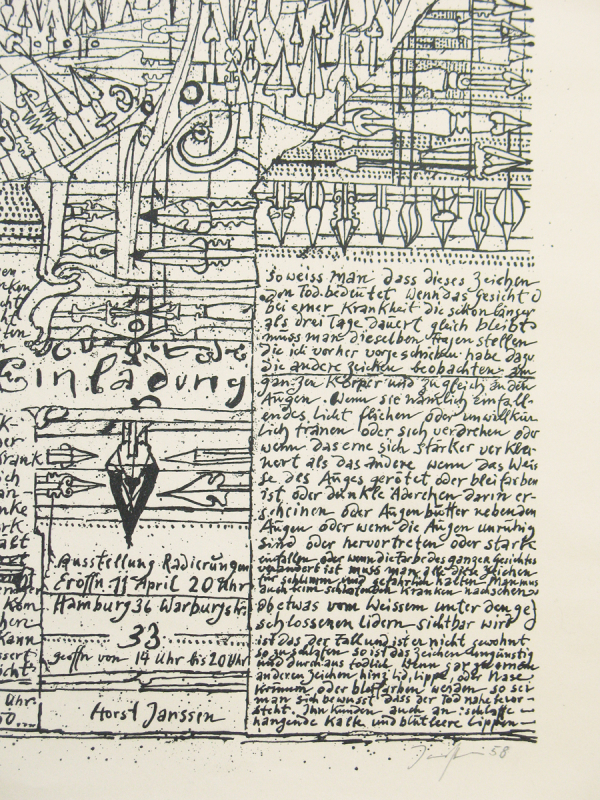 Einladung
Ausstellung Radierungen
Eröffn 11 April 20 Uhr
Hamburg 36 Warburgstr.
33
geöffn von 14 Uhr bis 20 Uhr
Horst Janssen
So weiss man dass dieses Zeichen
den Tod bedeutet. Wenn das gesicht
bei einer Krankheit die schon länger
als drei Tage dauert gleich bleibt
muss man dieselben fragen stellen
die ich vorher vorgeschrieben habe dazu
die andere zeichen beobachten am
ganzen Körper und zugleich an den
Augen. Wenn sie nämlich einfall-
endes Licht fliehen oder unwillkür
lich tränen oder sich verdrehen oder
wenn das eine sich stärker verklei
nert als das andere wenn das Weis
se des Auges gerötet oder bleifarben
ist oder dunkle Äderchen darin er-
scheinen oder Augenbutter neben den
Augen oder wenn die Augen unruhig
sind oder hervortreten oder stark
einfallen oder wenn die farbe des ganzen gesichtes
verändert ist muss man alle diese zeichen
für schlimm und gefährlich halten. Man muss
auch beim schlafenden Kranken nachsehen
ob etwas vom Weissem unter den ge
schlossenen Lidern sichtbar wird
ist das der fall und ist er nicht gewohnt
so zu schlafen so ist das zeichen ungünstig
und durchaus tödlich Wenn gar zu
anderen zeichen hinz Lid, Lippe, oder Nase
krumm oder bleifarben werden so sei
man sich bewusst dass der Tod nahe bevor-
steht. Ihn künden auch an: schlaffe
hängende kalte und blutleere Lippen
58